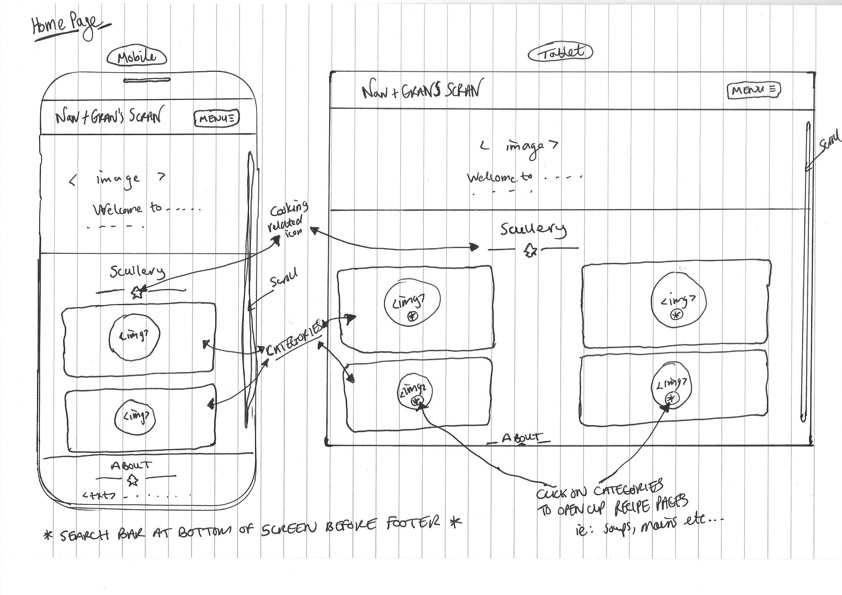 Home Page
Mobile
NAN + GRAN'S SCRAN
MENU
< image >
Welcome to .....
Scullery
<img>
<img>
ABOUT
<txt> . . . . . .
Cooking
related
icon
Scroll
CATEGORIES
Tablet
NAN + GRAN'S SCRAN
MENU
< image >
Welcome to ....
Scroll
Scullery
<img>
*
<img>
*
<img>
*
<img>
*
ABOUT
CLICK ON CATEGORIES
TO OPEN UP RECIPE PAGES
ie: soups, mains etc...
* SEARCH BAR AT BOTTOM OF SCREEN BEFORE FOOTER *